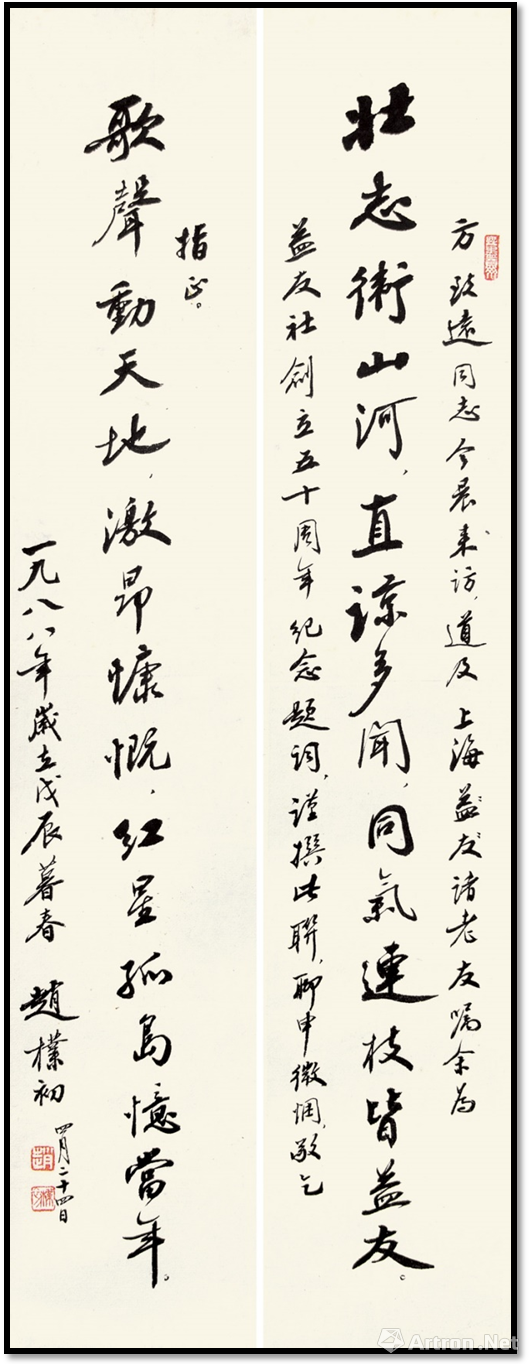 方致遠同志今晨来访，道及上海益友诸老友嘱余为
壯志衛山河，直諒多聞，同氣連枝皆益友。
益友社創立五十周年纪念题词，谨撰此聯，聊申微悃，敬乞
指正。
歌聲動天地，激昂慷慨，红星孤島憶當年。
一九八八年歲在戊辰暮春 趙樸初
四月二十四日
Artron.Net